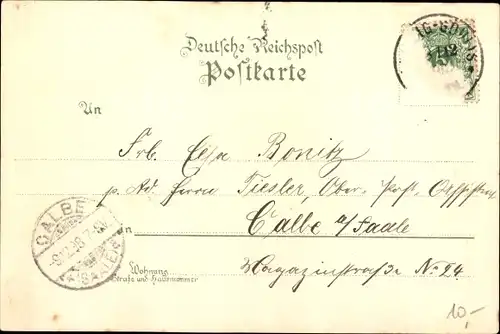 Deutsche Reichspost
Postkarte
An
Frl. Elsa Bonitz
p. Ad. Herrn Tiesler, Ober-Post
in Calbe a/Saale
Wohnung
Straße und Hausnummer
Magazinstraße No 24.
CALBE
(SAALE)
10,-